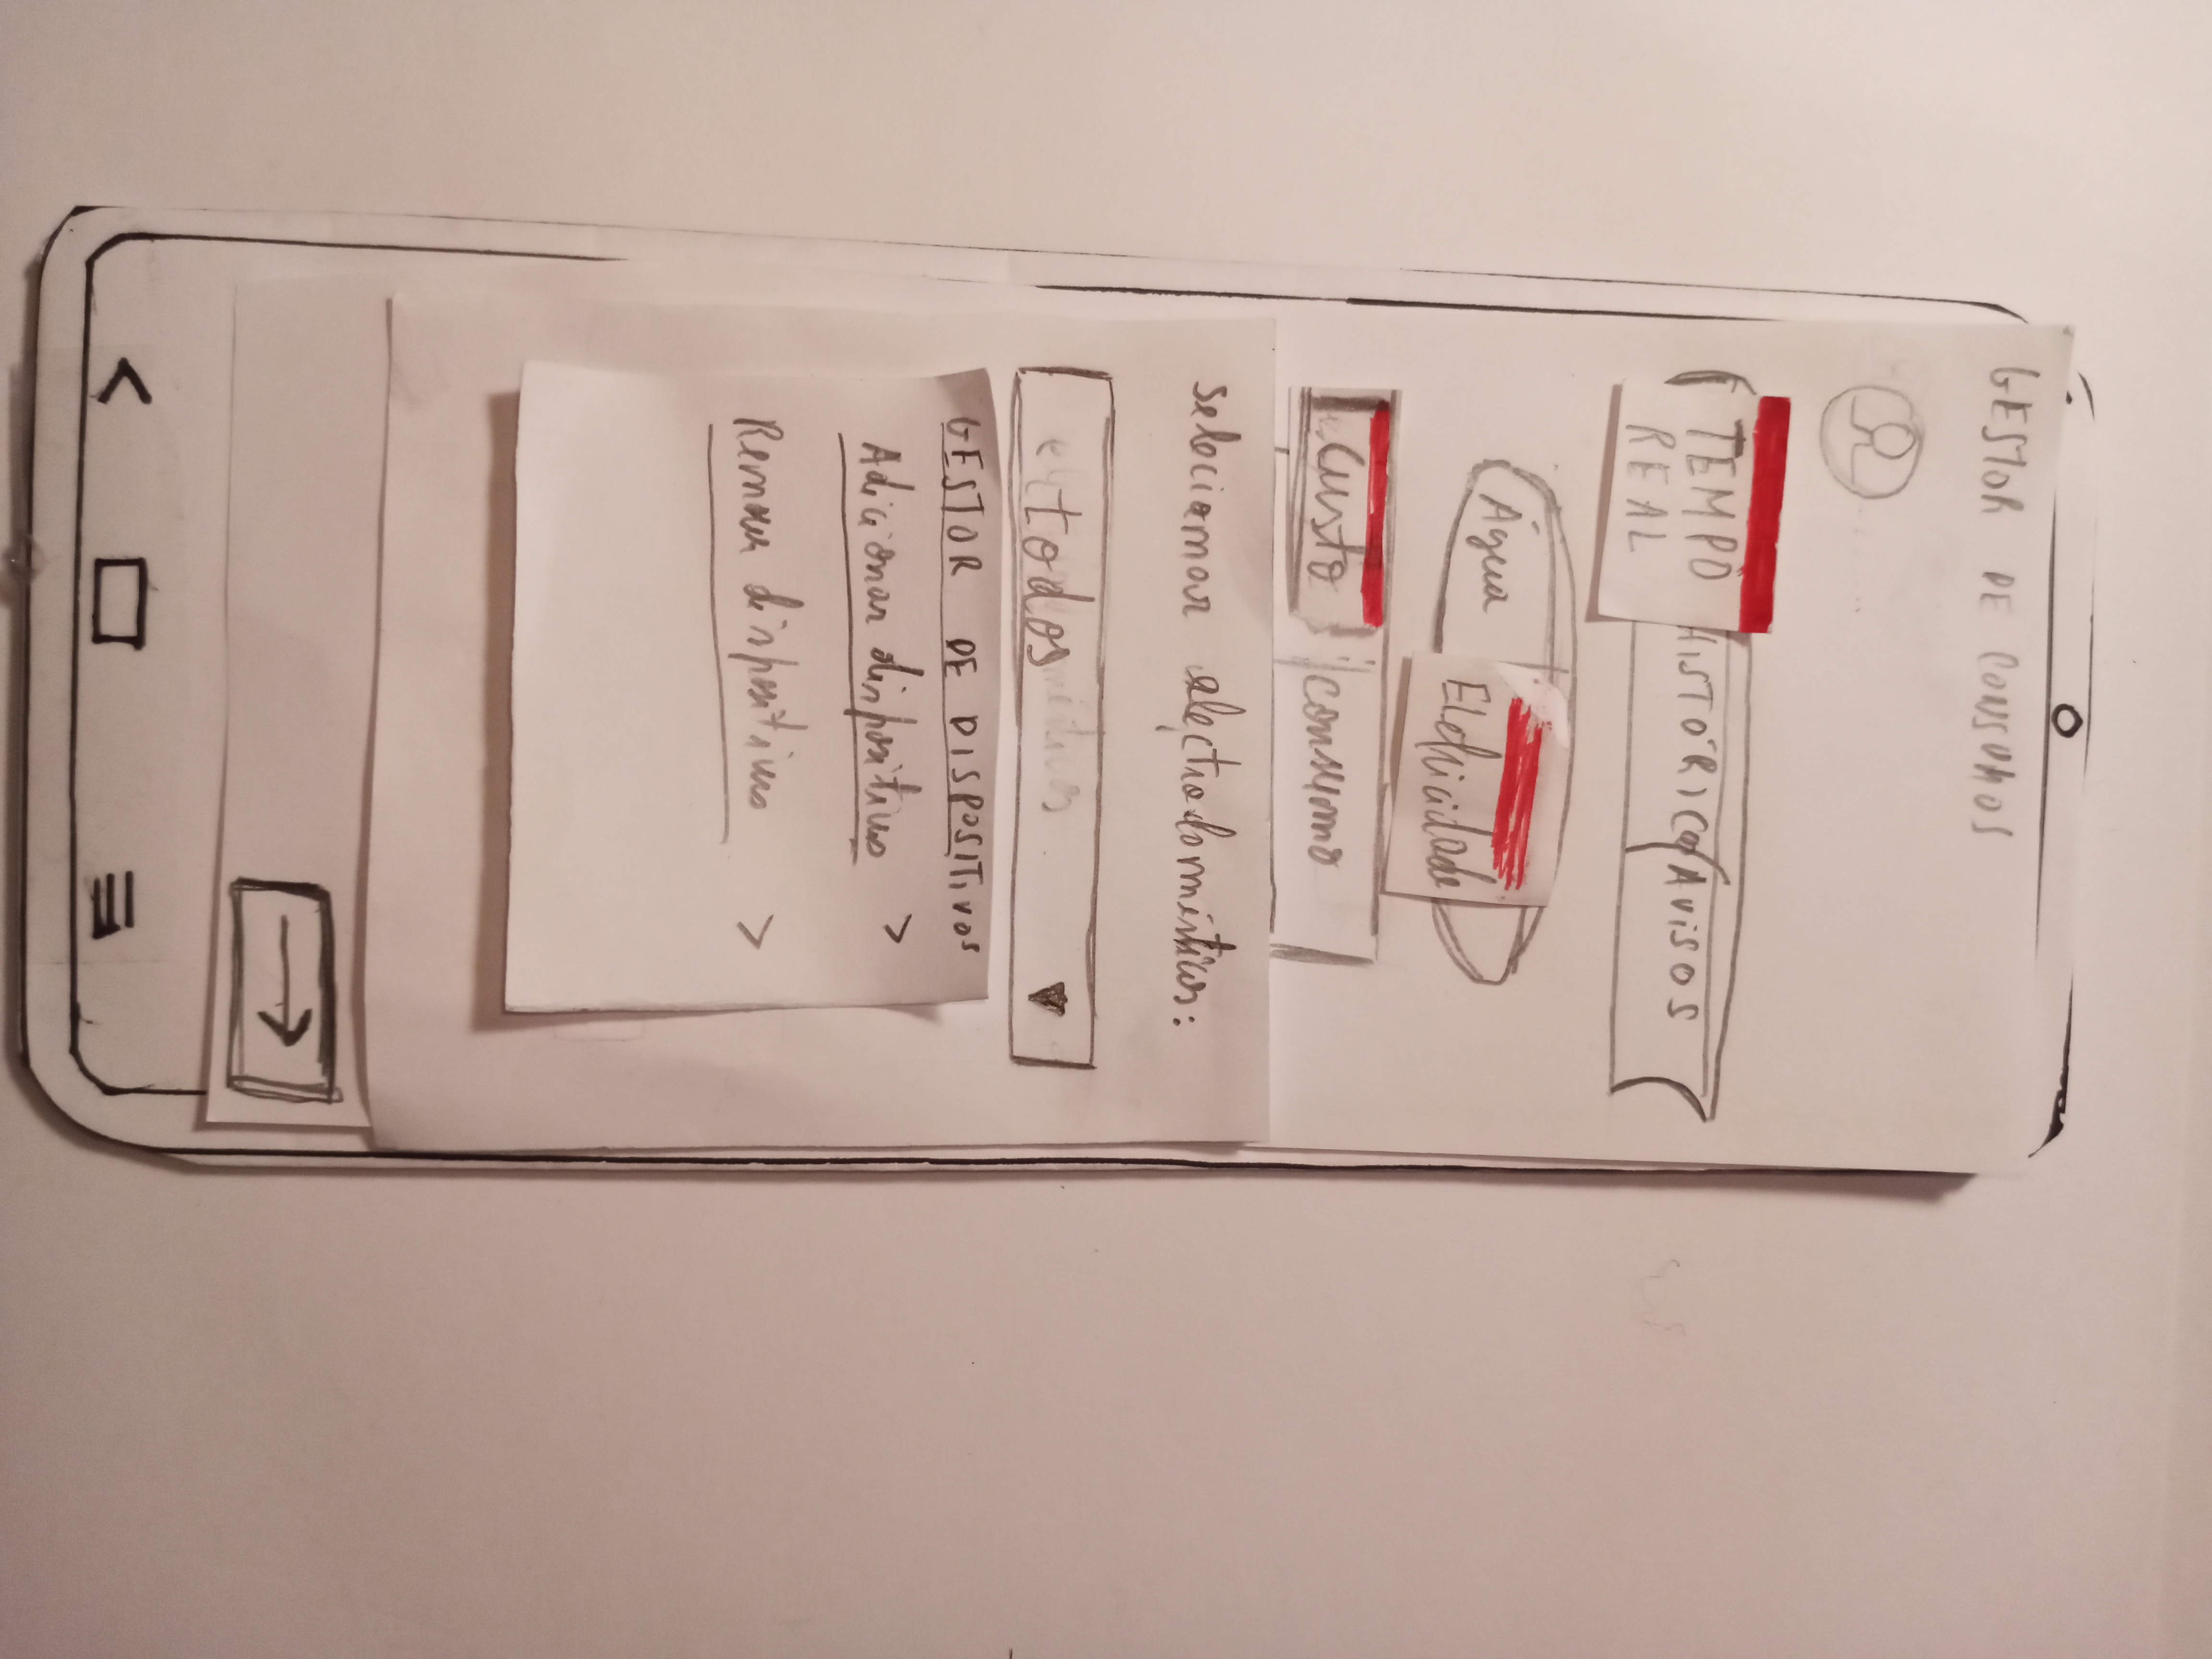 GESTOR DE CONSUMOS
TEMPO
REAL
HISTÓRICO
AVISOS
Água
Eletricidade
Custo
consumo
selecionar electrodomésticos:
todos
GESTOR DE DISPOSITIVOS
Adicionar dispositivo >
Remover dispositivo >